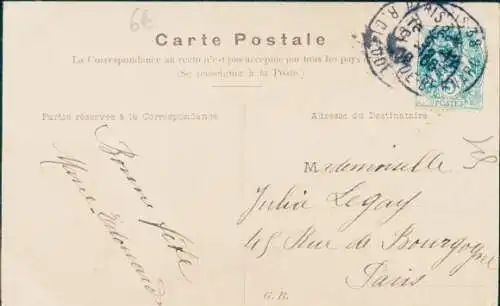 66
Carte Postale
La Correspondance au recto n'est pas acceptée par tous les pays
(Se renseigner à la Poste)
Partie réservée à la Correspondance
Adresse du Destinataire
Bonne fête
Marie-Edouard
Mademoiselle
Julia Legay
45 Rue de Bourgogne
Paris
G. R.
PARIS
POSTES